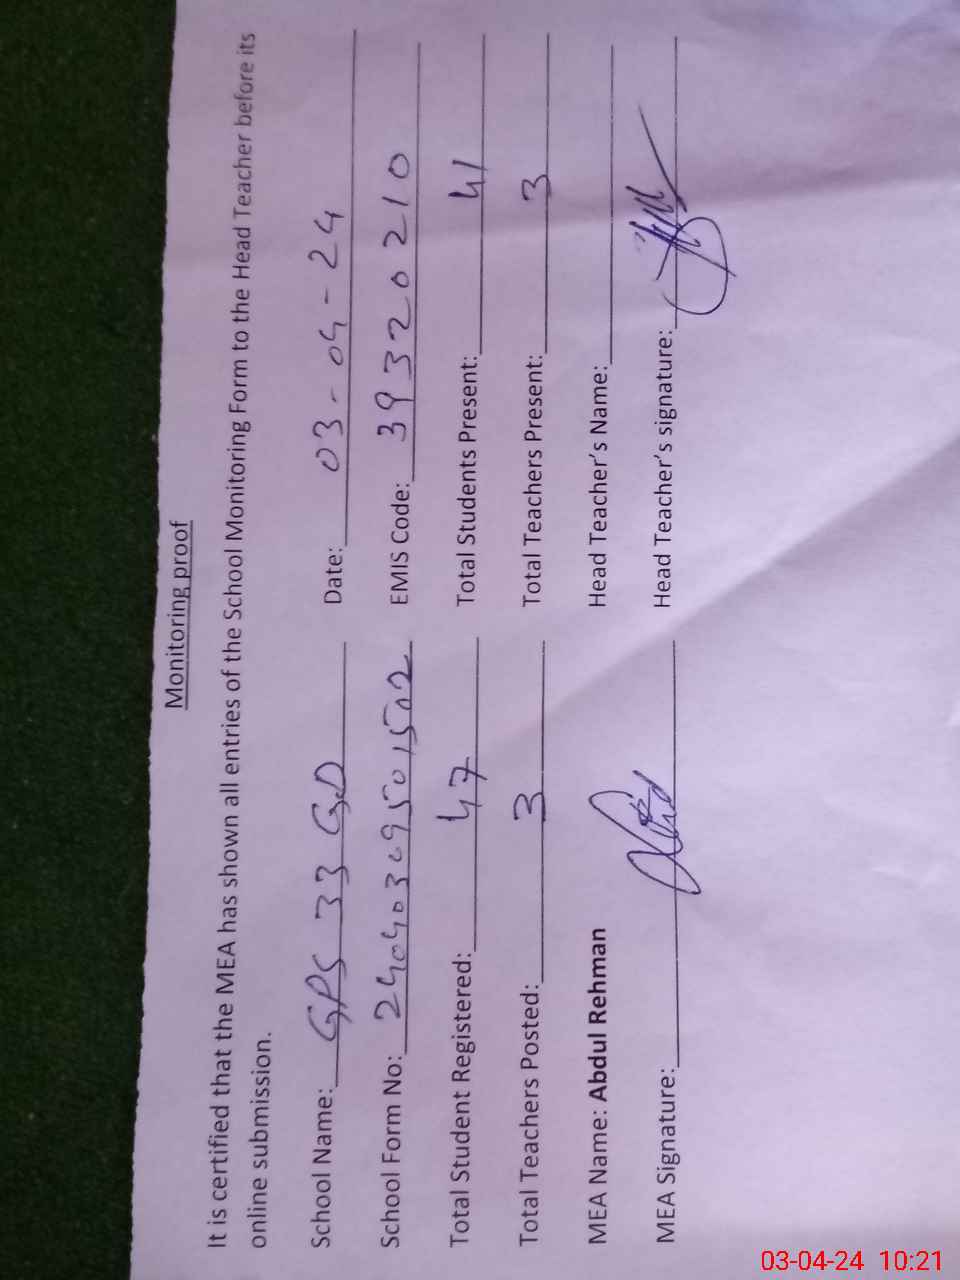 Monitoring proof
It is certified that the MEA has shown all entries of the School Monitoring Form to the Head Teacher before its
online submission.
School Name: GPS 33 GD Date: 03-04-24
School Form No: EMIS Code: 39320210
Total Student Registered: 47 Total Students Present: 41
Total Teachers Posted: 3 Total Teachers Present: 3
MEA Name: Abdul Rehman Head Teacher's Name:
MEA Signature: Head Teacher's signature:
03-04-24 10:21